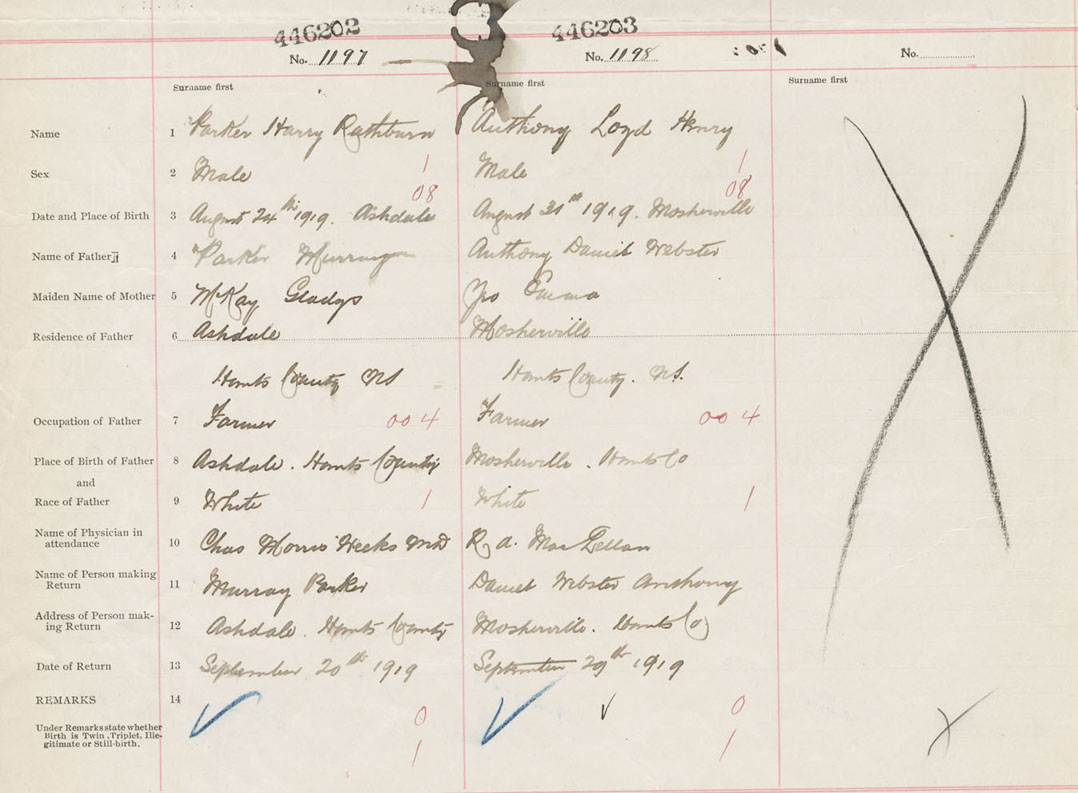 446202 446203
No. 1197 No. 1198 No.
Surname first Surname first Surname first
Name 1 Parker Harry Rathburn Anthony Loyd Henry
Sex 2 Male 1 Male 1
08 08
Date and Place of Birth 3 August 24th 1919. Ashdale August 31st 1919. Mosherville
Name of Father 4 Parker Murray Anthony Daniel Webster
Maiden Name of Mother 5 McKay Gladys Emma
Residence of Father 6 Ashdale Mosherville
Hants County NS Hants County. NS.
Occupation of Father 7 Farmer 004 Farmer 004
Place of Birth of Father 8 Ashdale. Hants County Mosherville. Hants Co
and
Race of Father 9 White 1 White 1
Name of Physician in
attendance 10 Chas Morris Weeks MD R. A. MacLellan
Name of Person making
Return 11 Murray Parker Daniel Webster Anthony
Address of Person mak-
ing Return 12 Ashdale. Hants County Mosherville. Hants Co
Date of Return 13 September 20th 1919 September 29th 1919
REMARKS 14
0 0
Under Remarks state whether
Birth is Twin, Triplet, Ille-
gitimate or Still-birth. 1 1